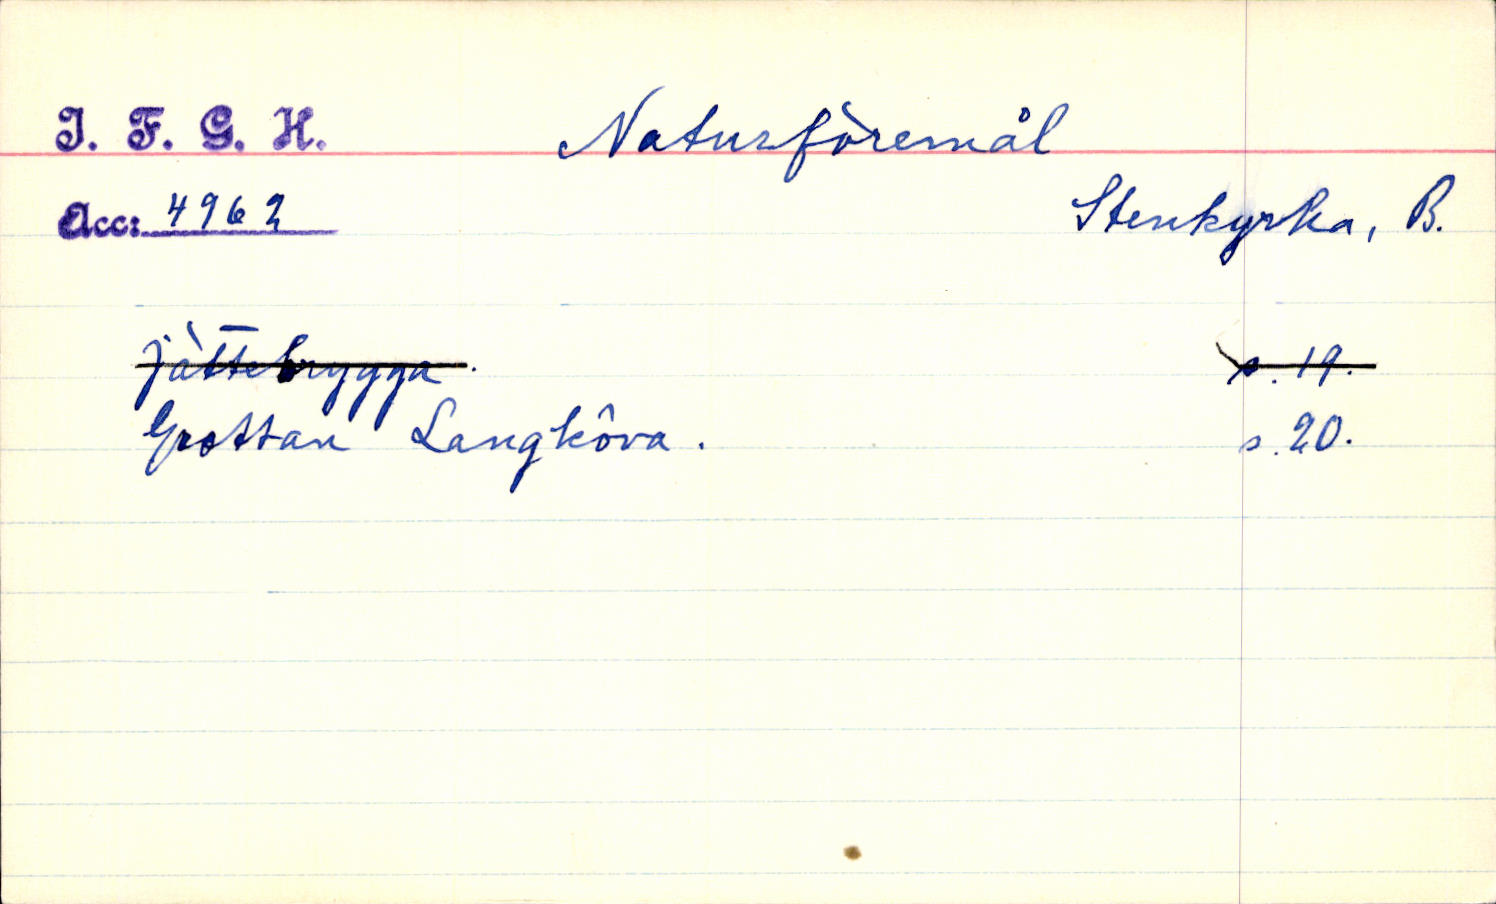 I. F. G. H. Naturföremål
Acc: 4962 Stenkyrka, B.
jättebrygga. s. 19.
Grottan Langköva. s. 20.